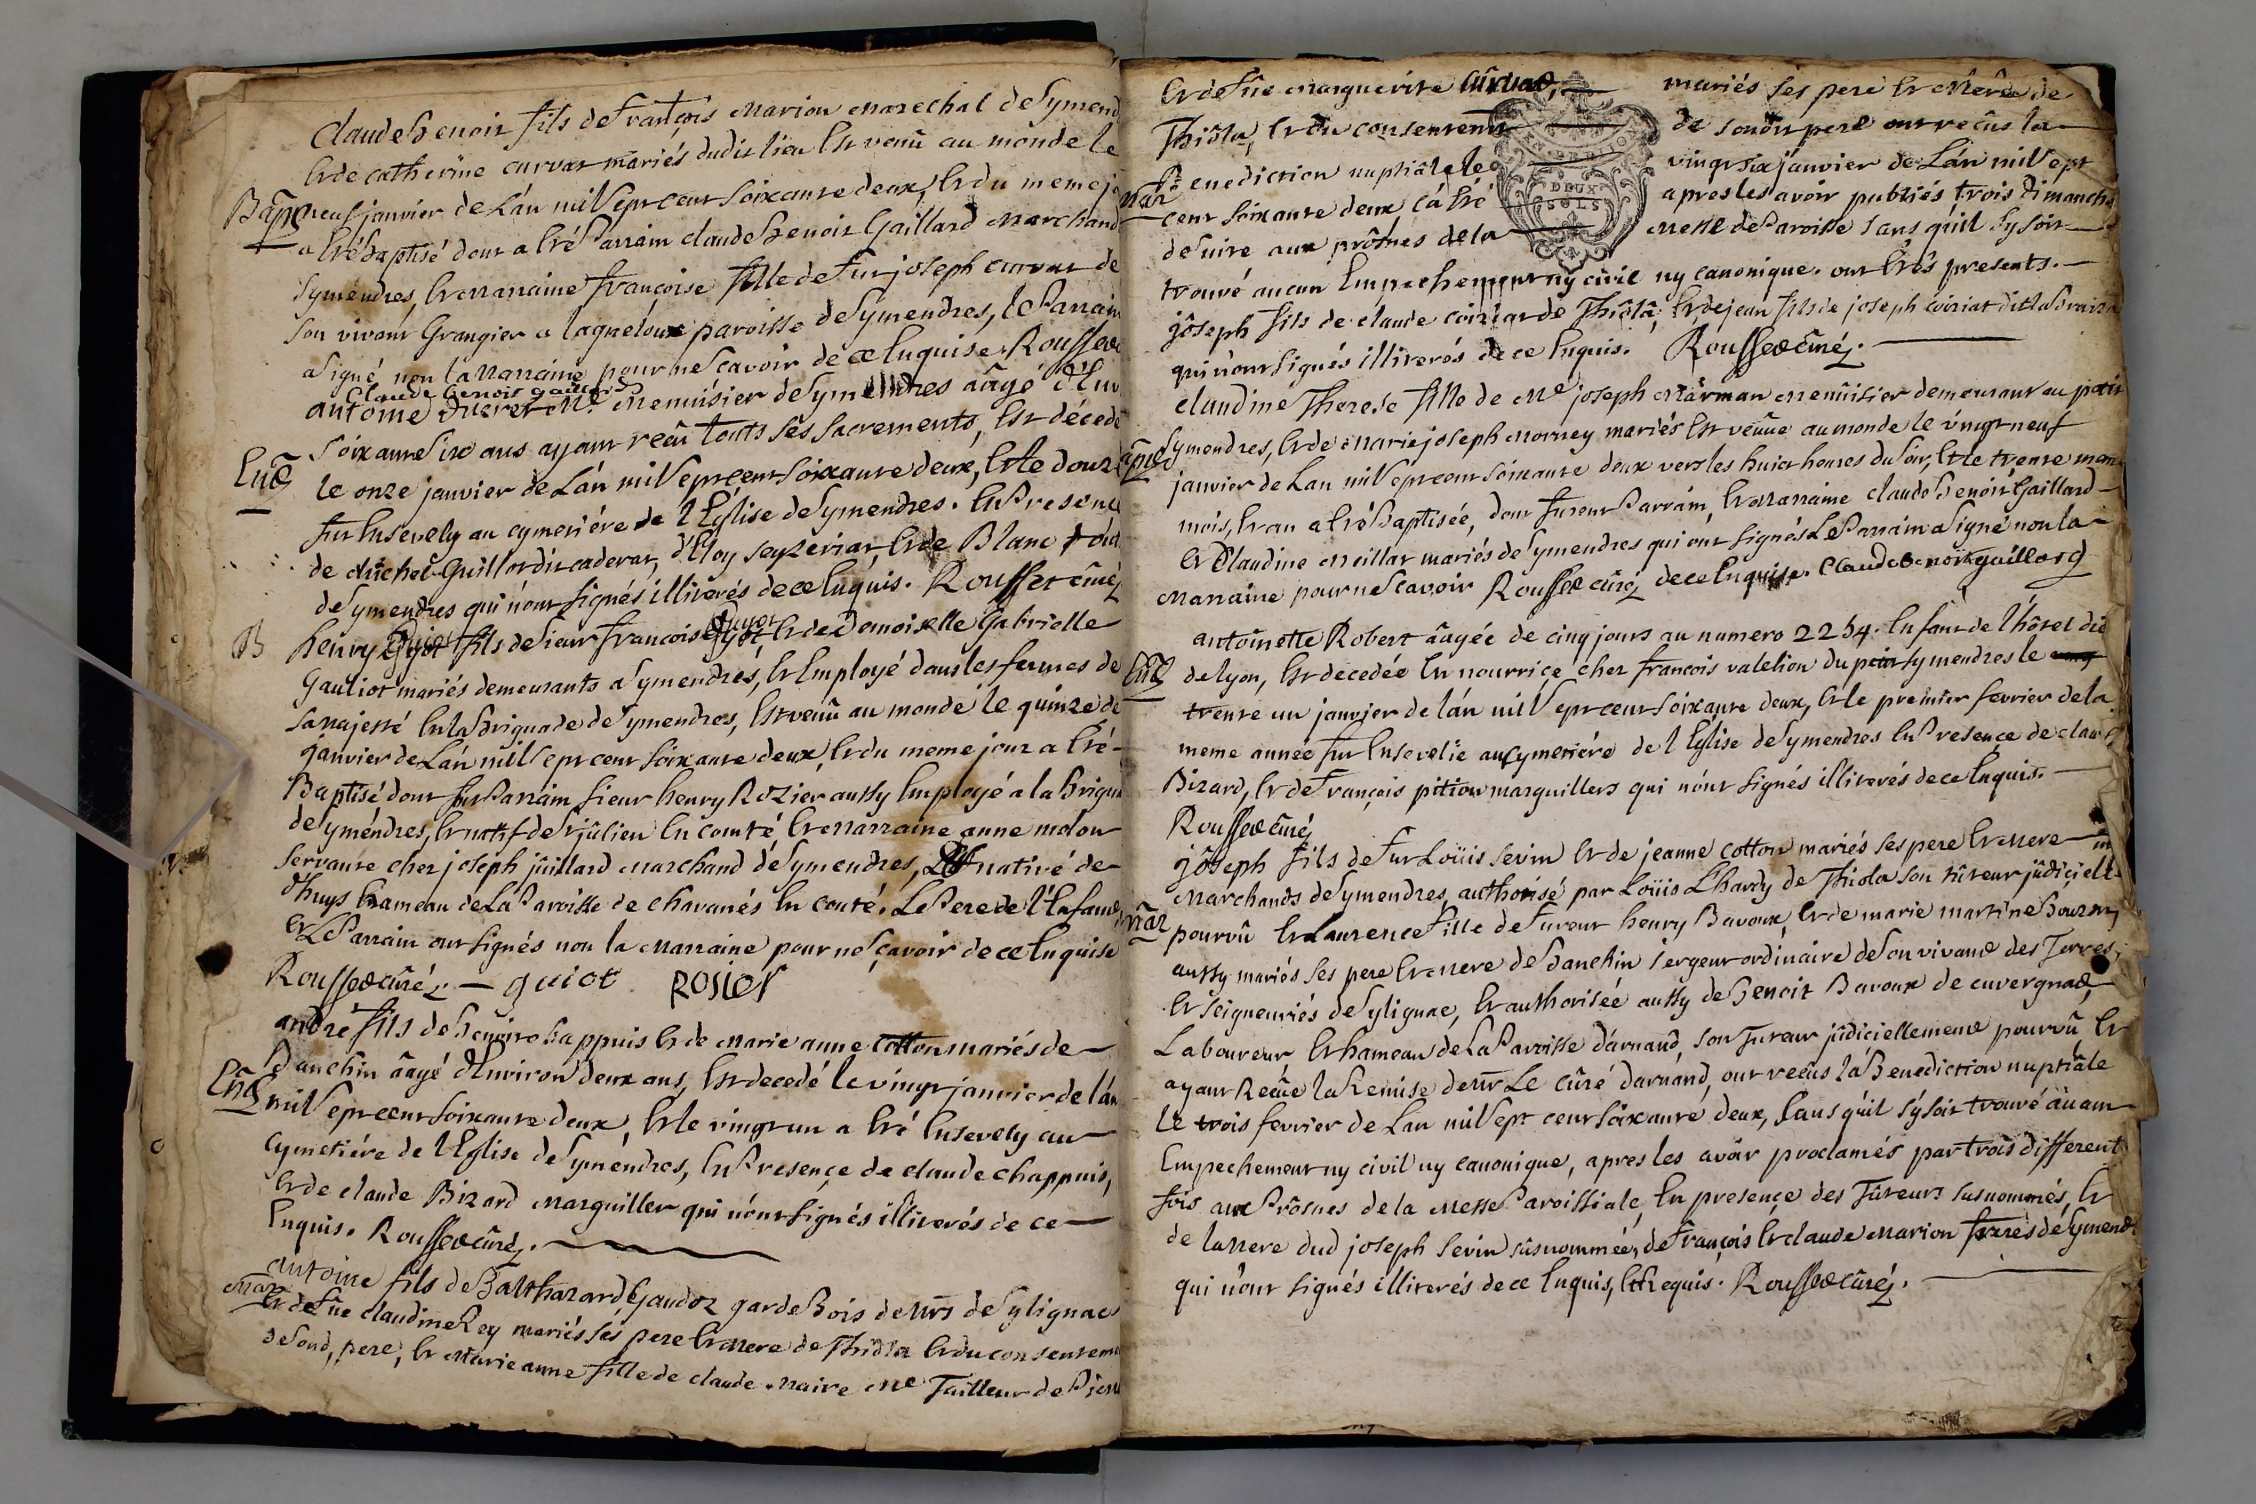 claude benoit fils de françois marion marechal de Symend
Et de catherine curvat mariés dudit lieu Est venû au monde le
Bapᵐᵉ neuf janvier de L'an mil sept cent soixante deux, Et du meme jo
a Eté baptisé dont a Eté Parrain claude benoit Gaillard marchand
Symendres, Et marraine françoise fille de fut joseph curvat de
son vivant Grangier a laqueloux paroisse de Symendres, le Parrain
a signé non la marraine pour ne scavoir de ce Enquise. Rousset
claude benoit gaillard
antoine Mᵉ menuisier de Symendres âagé d'Env
soixante six ans ayant recû touts ses sacrements, Est décedé
Enᵉ le onze janvier de L'an mil sept cent soixante deux, Et le douze
fut Ensevely au cymetiére de l'Eglise de Symendres. En Presence
de michel Guillot dit caderat, d'Eloy seyzeriat Et de Blanc
de Symendres qui n'ont signés illiterés de ce Enquis. Rousset cûré
B henry Guiot fils de sieur françois Guyot Et de Demoiselle Gabrielle
Gauliot mariés demeurants a Symendres, Et Employé dans les fermes de
sa majesté En la Briguade de Symendres, Est venû au monde le quinze de
janvier de L'an mil sept cent soixante deux, Et du meme jour a Eté
Baptisé dont fut Parrain sieur henry Rozier aussy Employé a la Brigua
de Syméndres, Et natif de Sᵗ jûlien En comté Et marraine anne molon
servante chez joseph jûillard marchand de Symendres, native de
d'huys hameau de La Paroisse de chavanés En conté. Le Pere de l'Enfant
Et Le Parrain ont signés non la marraine pour ne sçavoir de ce Enquise
Rousset cûré. — guiot ROSIER
andré fils de benoit chappuis Et de marie anne cotton mariés de
Danchin âagé d'Environ deux ans, Est decedé le vingt janvier de l'an
Enᵉ mil sept cent soixante deux, Et le vingt un a Eté Ensevely au
cymetiére de l'Eglise de Syméndres, En Presençe de claude chappuis,
Et de claude Bizard marguiller qui n'ont signés illiterés de ce
Enquis. Rousset cûré.
mar antoine fils de Balthazard Gaudoz garde Bois de Mrs de Sylignac
Et de fûe claudine Rey mariés ses pere Et mere de Thiola Et du consenteme
de sond, pere, Et marie anne fille de claude maire Mᵉ Tailleur de
Et de fûe marguerite mariés ses pere Et mere de
Thiôla, Et du consentemt de sondit pere ont recûs la
Mar Benediction nuptiâle le vingt six janvier de L'an mil sept
cent soixante deux, çá Eté apres les avoir publiés trois Dimanches
de suite aux prônes de la messe de Paroisse sans qu'il sy soit
DEUX
SOLS
trouvé aucun Empechement ny civil ny canonique. ont Etés presents.
jôseph fils de claude coiriat de Thiôla, Et de jean fils de joseph coiriat dit la
qui n'ont signés illiterés de ce Enquis. Rousset cûré.
claudine Therese fille de Mᵉ joseph marman menûisier demeurant au petit
Symendres, Et de marie joseph morney mariés Est vénue au monde le vingt neuf
janvier de L'an mil sept cent soixante deux vers les huict heures du soir, Et le trente meme
mois, Et an a Eté Baptisée, dont furent Parrain, Et marraine claude benoit Gaillard
Et Claudine meillat mariés de Symendres qui ont signés Le Parrain a signé non la
marraine pour ne scavoir Rousset cûré de ce Enquise. Claude benoit gaillard
antoinette Robert âagée de cinq jours au numero 2254. Enfant de l'hôtel die
Enᵉ de lyon, Est decedée En nourriçe chez françois valetion du petit Symendres le
trente un janvier de l'an mil sept cent soixante deux, Et le premier fevrier de la
meme année fut Ensevelie au cymetiére de l'Eglise de Symendres En Presençe de claude
Bizard, Et de françois pition marguillers qui n'ont signés illiterés de ce Enquis.
Rousset cûré
jôseph fils de fut Loüis sevin Et de jeanne cotton mariés ses pere Et mere
marchands de Symendres, authorisé par Loüis L'hardy de Thiola son tûteur jûdiciell
mar pourvû Et Laurence fille de furent henry Bavoux, Et de marie martine
aussy mariés ses pere Et mere de danchin sergent ordinaire de son vivant des Terres,
Et seigneuriés de Sylignac, Et authorisée aussy de benoit Bavoux de cuvergnat,
Laboureur Et hameau de La Paroisse d'árnand, son Tuteur jûdiciellement pourvû Et
ayant Recûe la Remise de Mr Le cûré d'arnand, ont recûs la Benediction nuptiâle
Le trois fevrier de L'an mil sept cent soixante deux, sans qu'il s'y soit trouvé aucun
Empechement ny civil ny canonique, apres les avoir proclamés par trois different
fois aux Prônes de la messe Paroissiale, En presençe des Tûteurs susnommés, Et
de la mere dud joseph sevin sûsnommée, de françois Et claude marion freres de Symend
qui n'ont signés illiterés de ce Enquis, Et Requis. Rousset cûré.